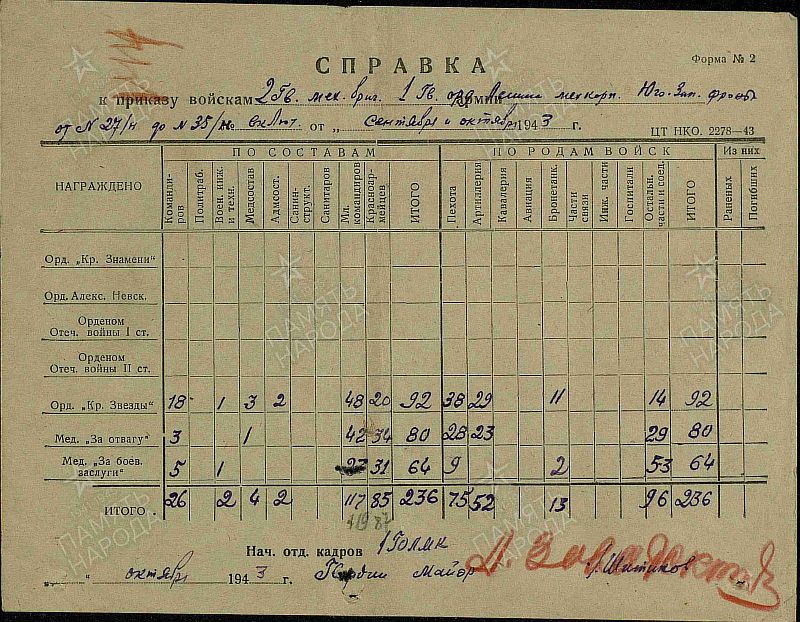 СПРАВКА
Форма № 2
к приказу войскам 2 Гв. мех. бриг. 1 Гв. орд. Армии Ленина мехкорп. Юго-Зап. фронта
от N 27/н до N 35/н № включ. от „ сентября и октября 1943 г.
ЦТ НКО. 2278—43
НАГРАЖДЕНО
ПО СОСТАВАМ
ПО РОДАМ ВОЙСК
Из них
Команди-ров Политраб. Воен. инж. и техн. Медсостав Адмсост. Санин-структ. Санитаров Мл. командиров Красноар-мейцев ИТОГО Пехота Артиллерия Кавалерия Авиация Бронетанк. Части связи Инж. части Госпитали Остальн. части и соед. ИТОГО Раненых Погибших
Орд. „Кр. Знамени"
Орд. Алекс. Невск.
Орденом
Отеч. войны I ст.
Орденом
Отеч. войны II ст.
Орд. „Кр. Звезды" 18 1 3 2 48 20 92 38 29 11 14 92
Мед. „За отвагу" 3 1 42 34 80 28 23 29 80
Мед. „За боев. заслуги" 5 1 27 31 64 9 2 53 64
ИТОГО 26 2 4 2 117 85 236 75 52 13 96 236
Нач. отд. кадров
„ " октября 1943 г. Гвардии Майор Шитиков
ПАМЯТЬ НАРОДА
ПАМЯТЬ НАРОДА
ПАМЯТЬ НАРОДА
ПАМЯТЬ НАРОДА
ПАМЯТЬ НАРОДА
ПАМЯТЬ НАРОДА